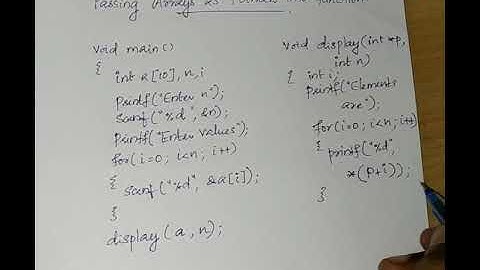 Passing Arrays as Pointers into function
void main()
{ int a[10], n, i
printf("Enter n");
scanf("%d", &n);
printf("Enter values");
for(i=0; i<n; i++)
{ scanf("%d", &a[i]);
}
display(a, n);
void display(int *p,
int n)
{ int i;
printf("Elements
are");
for(i=0; i<n; i++)
{ printf("%d",
*(p+i));
}